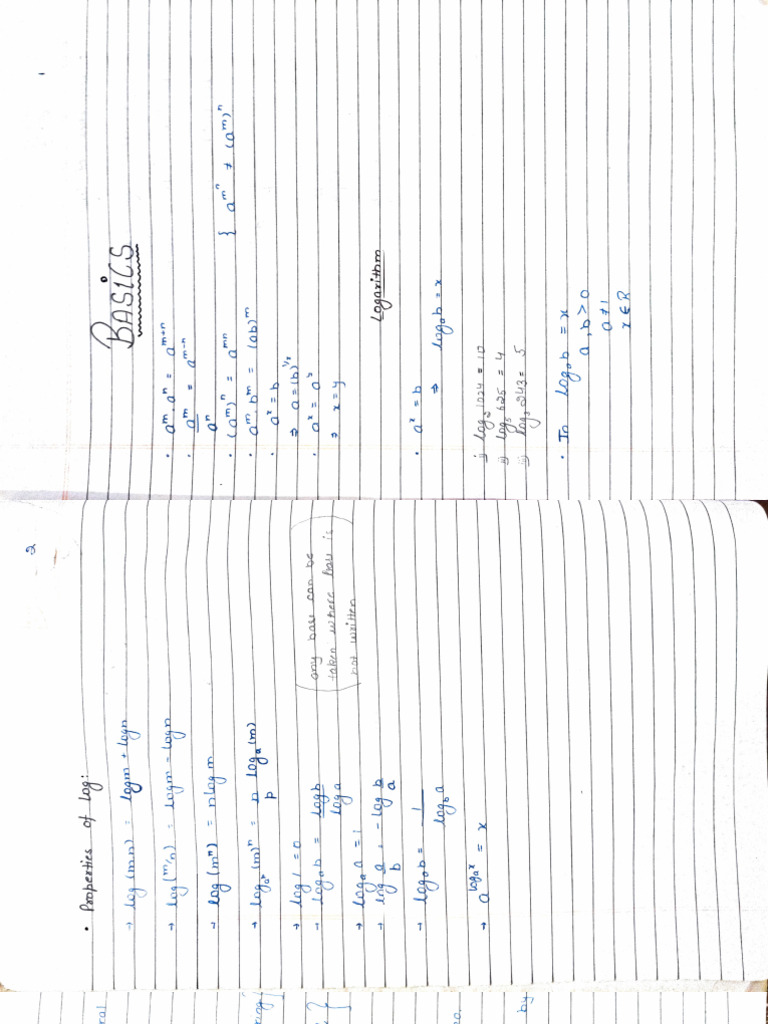 BASICS
• aᵐ. aⁿ = aᵐ⁺ⁿ
• aᵐ/aⁿ = aᵐ⁻ⁿ
• (aᵐ)ⁿ = aᵐⁿ { a^mⁿ ≠ (aᵐ)ⁿ
• aᵐ. bᵐ = (ab)ᵐ
• aˣ = b
⇒ a = (b)^1/x
• aˣ = aʸ
⇒ x = y
Logarithm
• aˣ = b
⇒ logₐb = x
i) log₂1024 = 10
ii) log₅625 = 4
iii) log₃243 = 5
• In logₐb = x
a, b > 0
a ≠ 1
x ∈ R
2
• Properties of Log:
→ log (mn) = logm + logn
→ log (m/n) = logm - logn
→ log (mⁿ) = nlogm
→ log_aᵖ (m)ⁿ = n/p logₐ(m)
→ log1 = 0
→ logₐb = logb/loga
(any base can be
taken where base is
not written)
→ logₐa = 1
→ log a/b = -log b/a
→ logₐb = 1/log_b a
→ a^logₐx = x